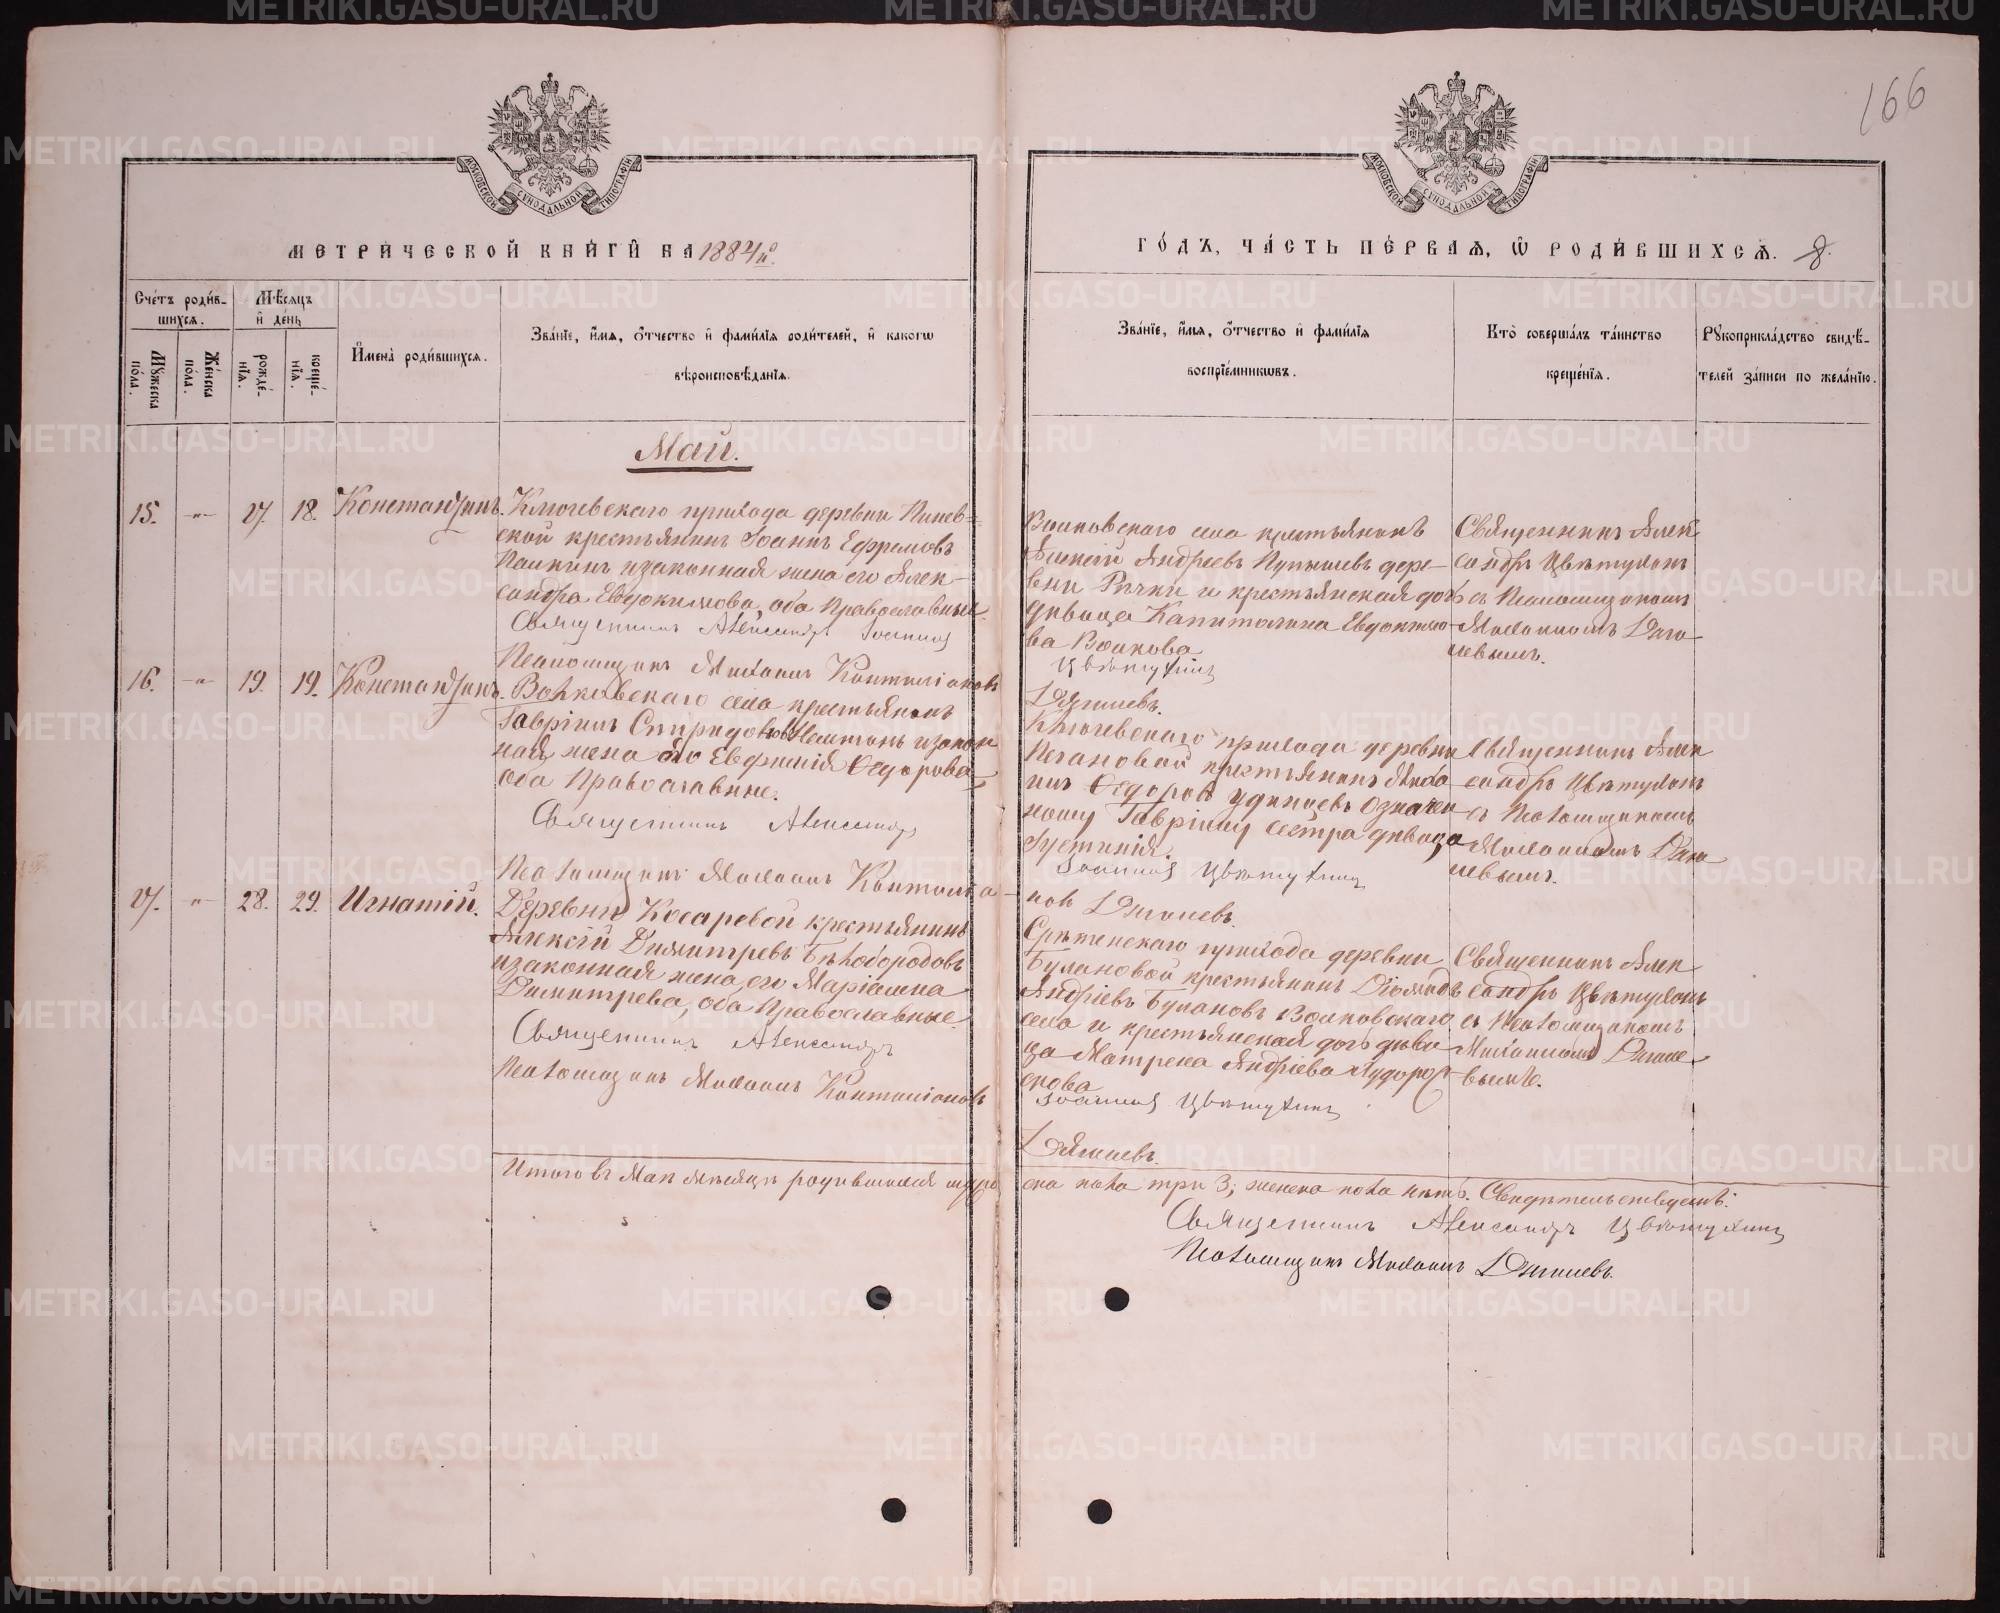 166
МОСКОВСКОЙ СУНОДАЛЬНОЙ ТИПОГРАФІИ
МОСКОВСКОЙ СУНОДАЛЬНОЙ ТИПОГРАФІИ
МЕТРИЧЕСКОЙ КНИГИ НА 1884й
ГОДЪ, ЧАСТЬ ПЕРВАЯ, Ѡ РОДИВШИХСЯ. 8.
Счетъ родив-
шихся.
Мужеска пола.
Женска пола.
Мѣсяцъ
и день
рожде-
нія.
креще-
нія.
Имена родившихся.
Званіе, имя, отчество и фамилія родителей, и какогѡ
вѣроисповѣданія.
Званіе, имя, отчество и фамилія
воспріемниковъ.
Кто совершалъ таинство
крещенія.
Рукоприкладство свидѣ-
телей записи по желанію.
Май.
15. -„- 17. 18. Константинъ.
Ключевскаго прихода деревни
ской крестьянинъ Іоаннъ Ефремовъ
Пайкинъ и законная жена его Алек-
сандра Евдокимова, оба Православные.
Священникъ Александръ Іоанновъ
Псаломщикъ Михаилъ
Волковскаго села крестьянинъ
Алексій Андреевъ дере-
вни Рички и крестьянская дочь
дѣвица Капитолина Евдокимо-
ва Волкова
Цвѣтухинъ
Священникъ Алек
сандръ Цвѣтухинъ
съ Псаломщикомъ
Михаиломъ
16. -„- 19. 19. Константинъ.
Волковскаго села крестьянинъ
Гавріилъ Спиридоновъ и закон
ная жена его Евфимія Ѳедорова,
оба Православные.
Священникъ Александръ
Псаломщикъ Михаилъ
Ключевскаго прихода деревни
крестьянинъ
Ѳедоровъ Удинцевъ означен
ному Гавріилу сестра дѣвица
Іустинія
Іоанновъ Цвѣтухинъ
Священникъ Алек
сандръ Цвѣтухинъ
съ Псаломщикомъ
Михаиломъ
17. -„- 28. 29. Игнатій.
Деревни Косаревой крестьянинъ
Алексій Димитревъ Бѣлобородовъ
и законная жена его Маріамна
Димитрева, оба Православные.
Священникъ Александръ
Псаломщикъ Михаилъ
Срѣтенскаго прихода деревни
Булановой крестьянинъ Діомидъ
Андріевъ Булановъ и Волковскаго
села крестьянская дочь дѣви
ца Матрена Андріева
Іоанновъ Цвѣтухинъ
Священникъ Алек
сандръ Цвѣтухинъ
съ Псаломщикомъ
Михаиломъ
Итого въ Маѣ мѣсяцѣ родившихся муже
ска пола три 3; женска пола нѣтъ. Свидѣтельствуемъ:
Священникъ Александръ Цвѣтухинъ
Псаломщикъ Михаилъ
METRIKI.GASO-URAL.RU